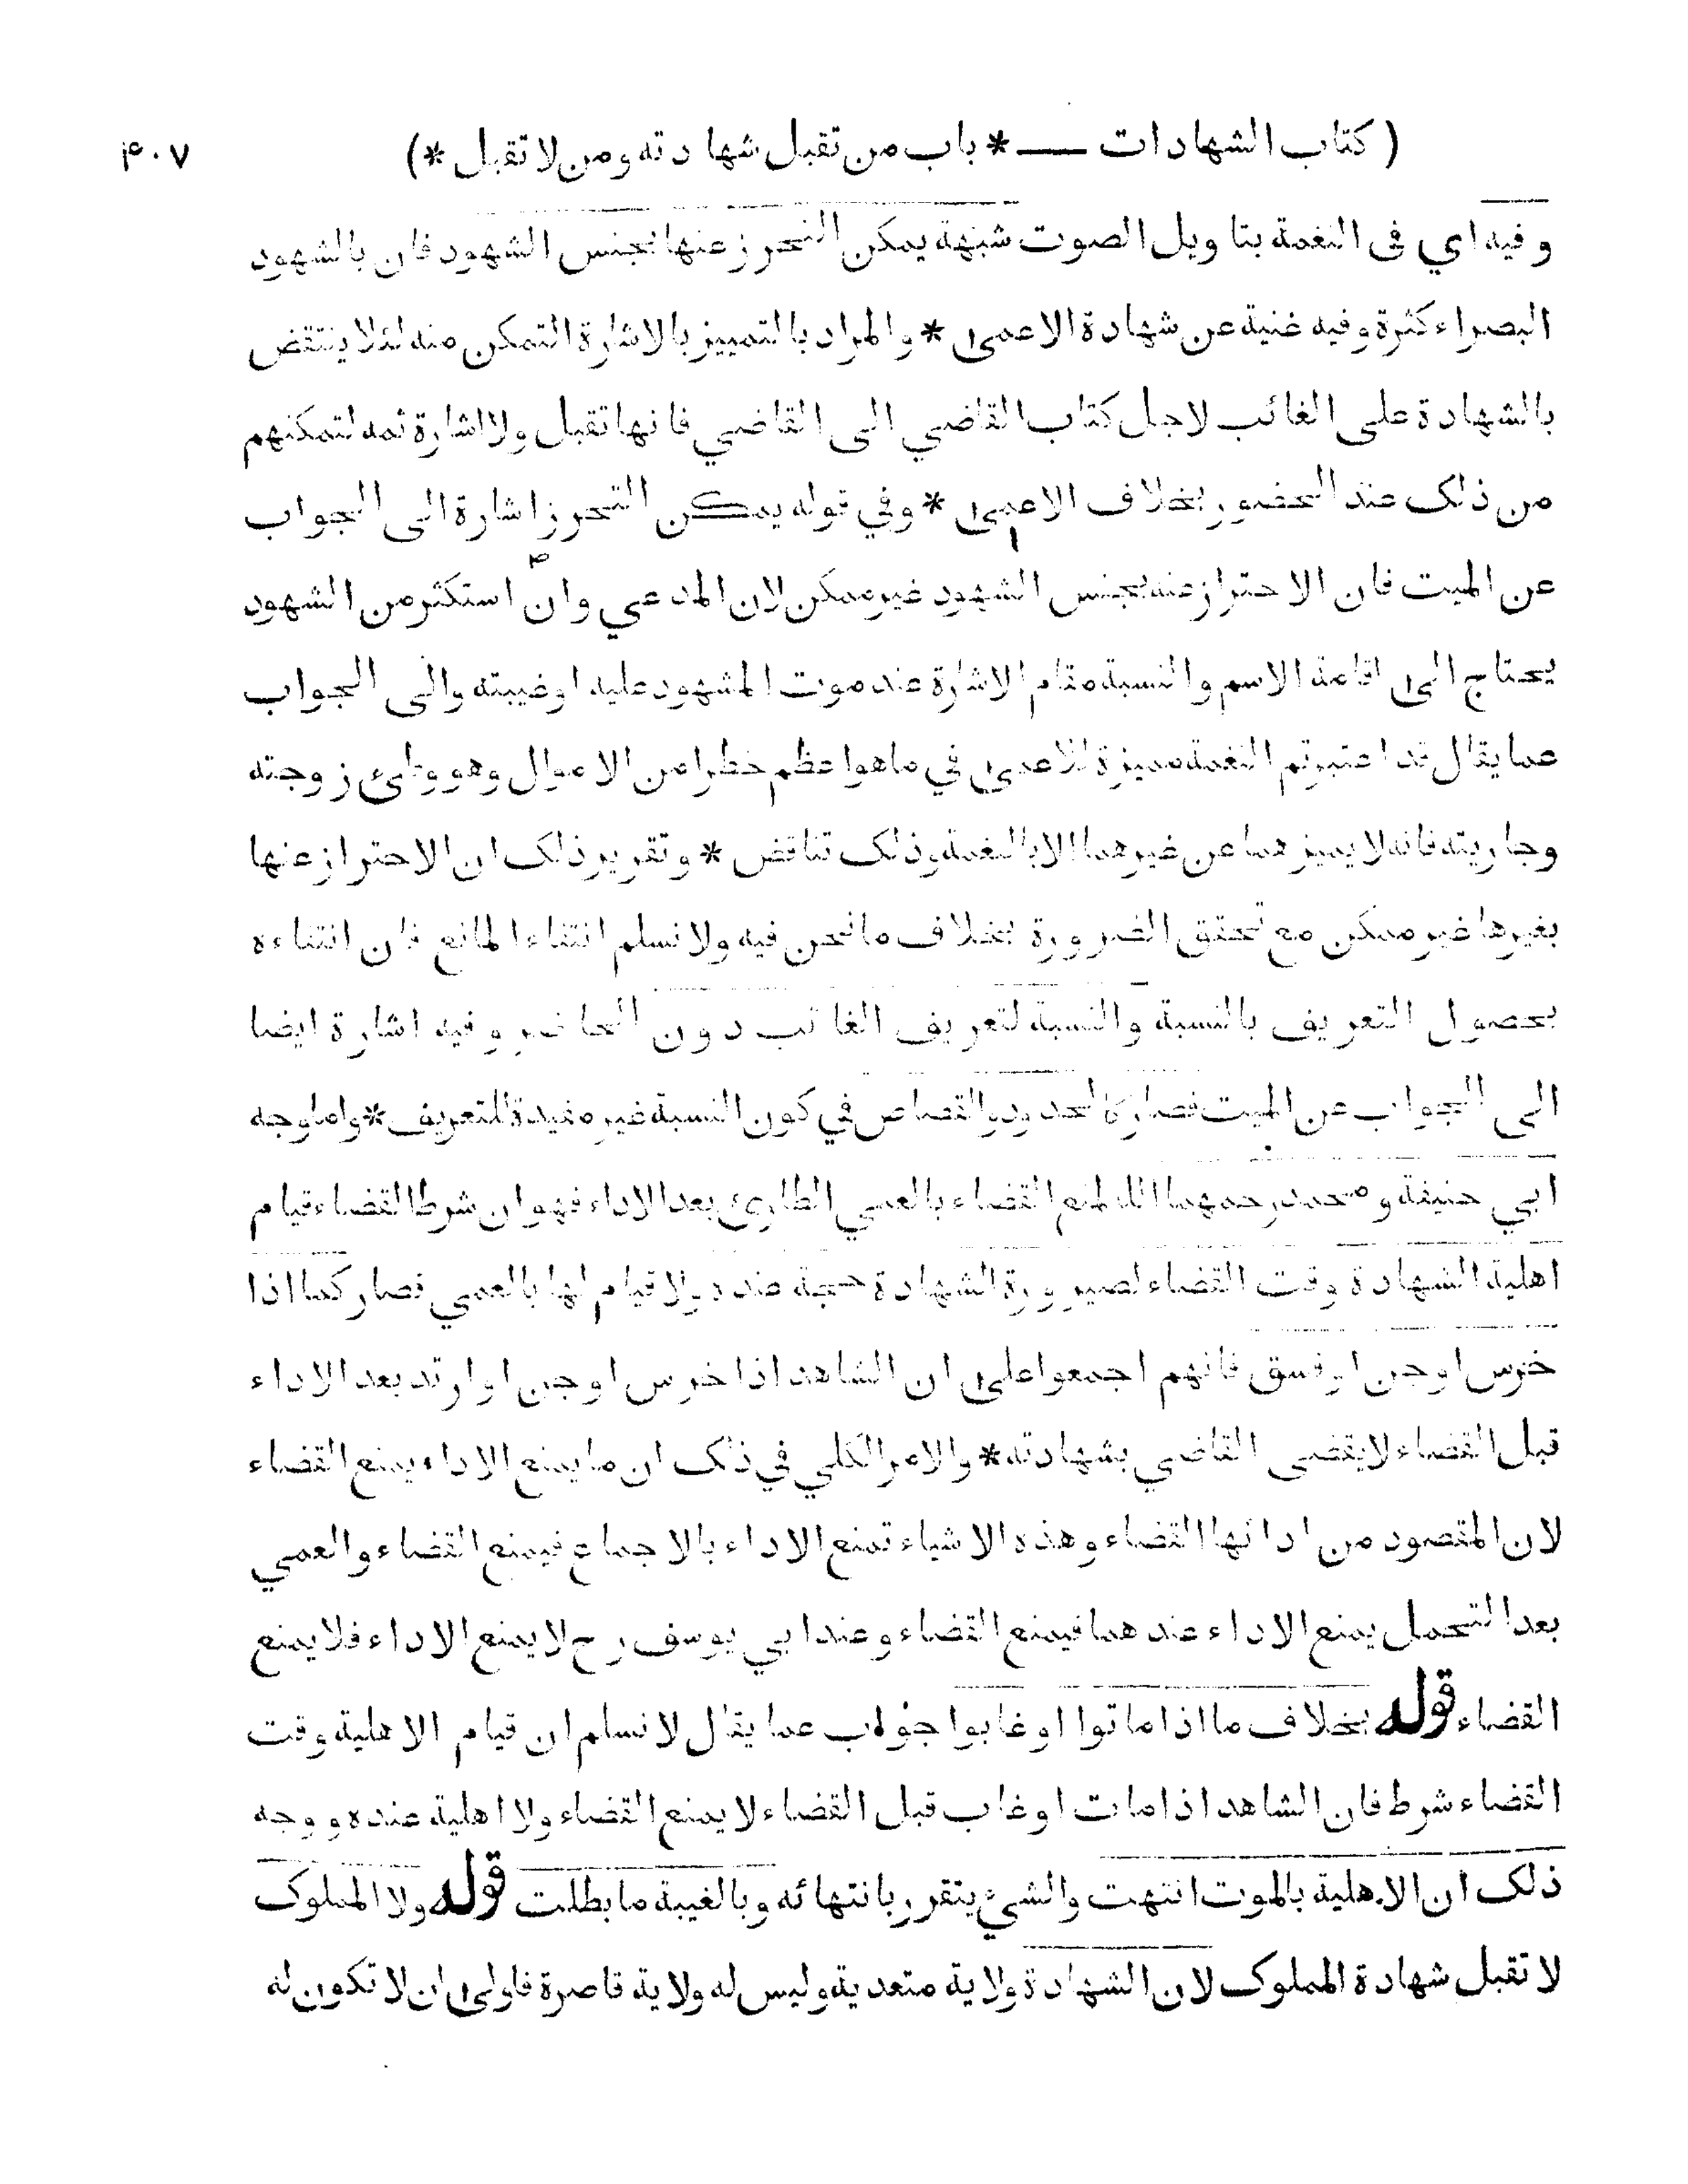 ( كتاب الشهادات — * باب من تقبل شهادته ومن لا تقبل * ) ۴۰۷
وفيه اي في النغمة بتاويل الصوت شبهة يمكن التحرز عنها بجنس الشهود فان بالشهود
البصراء كثرة وفيه غنية عن شهادة الاعمى * والمراد بالتمييز بالاشارة التمكن منه لئلا ينتقض
بالشهادة على الغائب لاجل كتاب القاضي الى القاضي فانها تقبل ولا اشارة ثمه لتمكنهم
من ذلك عند الحضور بخلاف الاعمى * وفي قوله يمكن التحرز اشارة الى الجواب
عن الميت فان الاحتراز عنه بجنس الشهود غير ممكن لان المدعي وان استكثر من الشهود
يحتاج الى اقامة الاسم والنسبة مقام الاشارة عند موت المشهود عليه او غيبته والى الجواب
عما يقال قد اعتبرتم النغمة مميزة للاعمى في ما هو اعظم خطرا من الاموال وهو وطئ زوجته
وجاريته فانه لا يميز هما عن غيرهما الا بالنغمة وذلك تناقض * وتقرير ذلك ان الاحتراز عنها
بغيرها غير ممكن مع تحقق الضرورة بخلاف ما نحن فيه ولا نسلم انتفاء المانع فان انتفاءه
بحصول التعريف بالنسبة والنسبة لتعريف الغائب دون الحاضر وفيه اشارة ايضا
الى الجواب عن الميت فصار كالحدود والقصاص في كون النسبة غير مفيدة للتعريف * واما وجه
ابي حنيفة ومحمد رحمهما الله لمنع القضاء بالعمي الطارئ بعد الاداء فهو ان شرط القضاء قيام
اهلية الشهادة وقت القضاء لصيرورة الشهادة حجة عنده ولا قيام لها بالعمي فصار كما اذا
خرس او جن او فسق فانهم اجمعوا على ان الشاهد اذا خرس او جن او ارتد بعد الاداء
قبل القضاء لا يقضى القاضي بشهادته * والامر الكلي في ذلك ان ما يمنع الاداء يمنع القضاء
لان المقصود من ادائها القضاء وهذه الاشياء تمنع الاداء بالاجماع فيمنع القضاء والعمي
بعد التحمل يمنع الاداء عند هما فيمنع القضاء وعند ابي يوسف رح لا يمنع الاداء فلا يمنع
القضاء قوله بخلاف ما اذا ماتوا او غابوا جواب عما يقال لا نسلم ان قيام الاهلية وقت
القضاء شرط فان الشاهد اذا مات او غاب قبل القضاء لا يمنع القضاء ولا اهلية عنده ووجه
ذلك ان الاهلية بالموت انتهت والشيء يتقرر بانتهائه وبالغيبة ما بطلت قوله ولا المملوك
لا تقبل شهادة المملوك لان الشهادة ولاية متعدية وليس له ولاية قاصرة فاولى ان لا تكون له